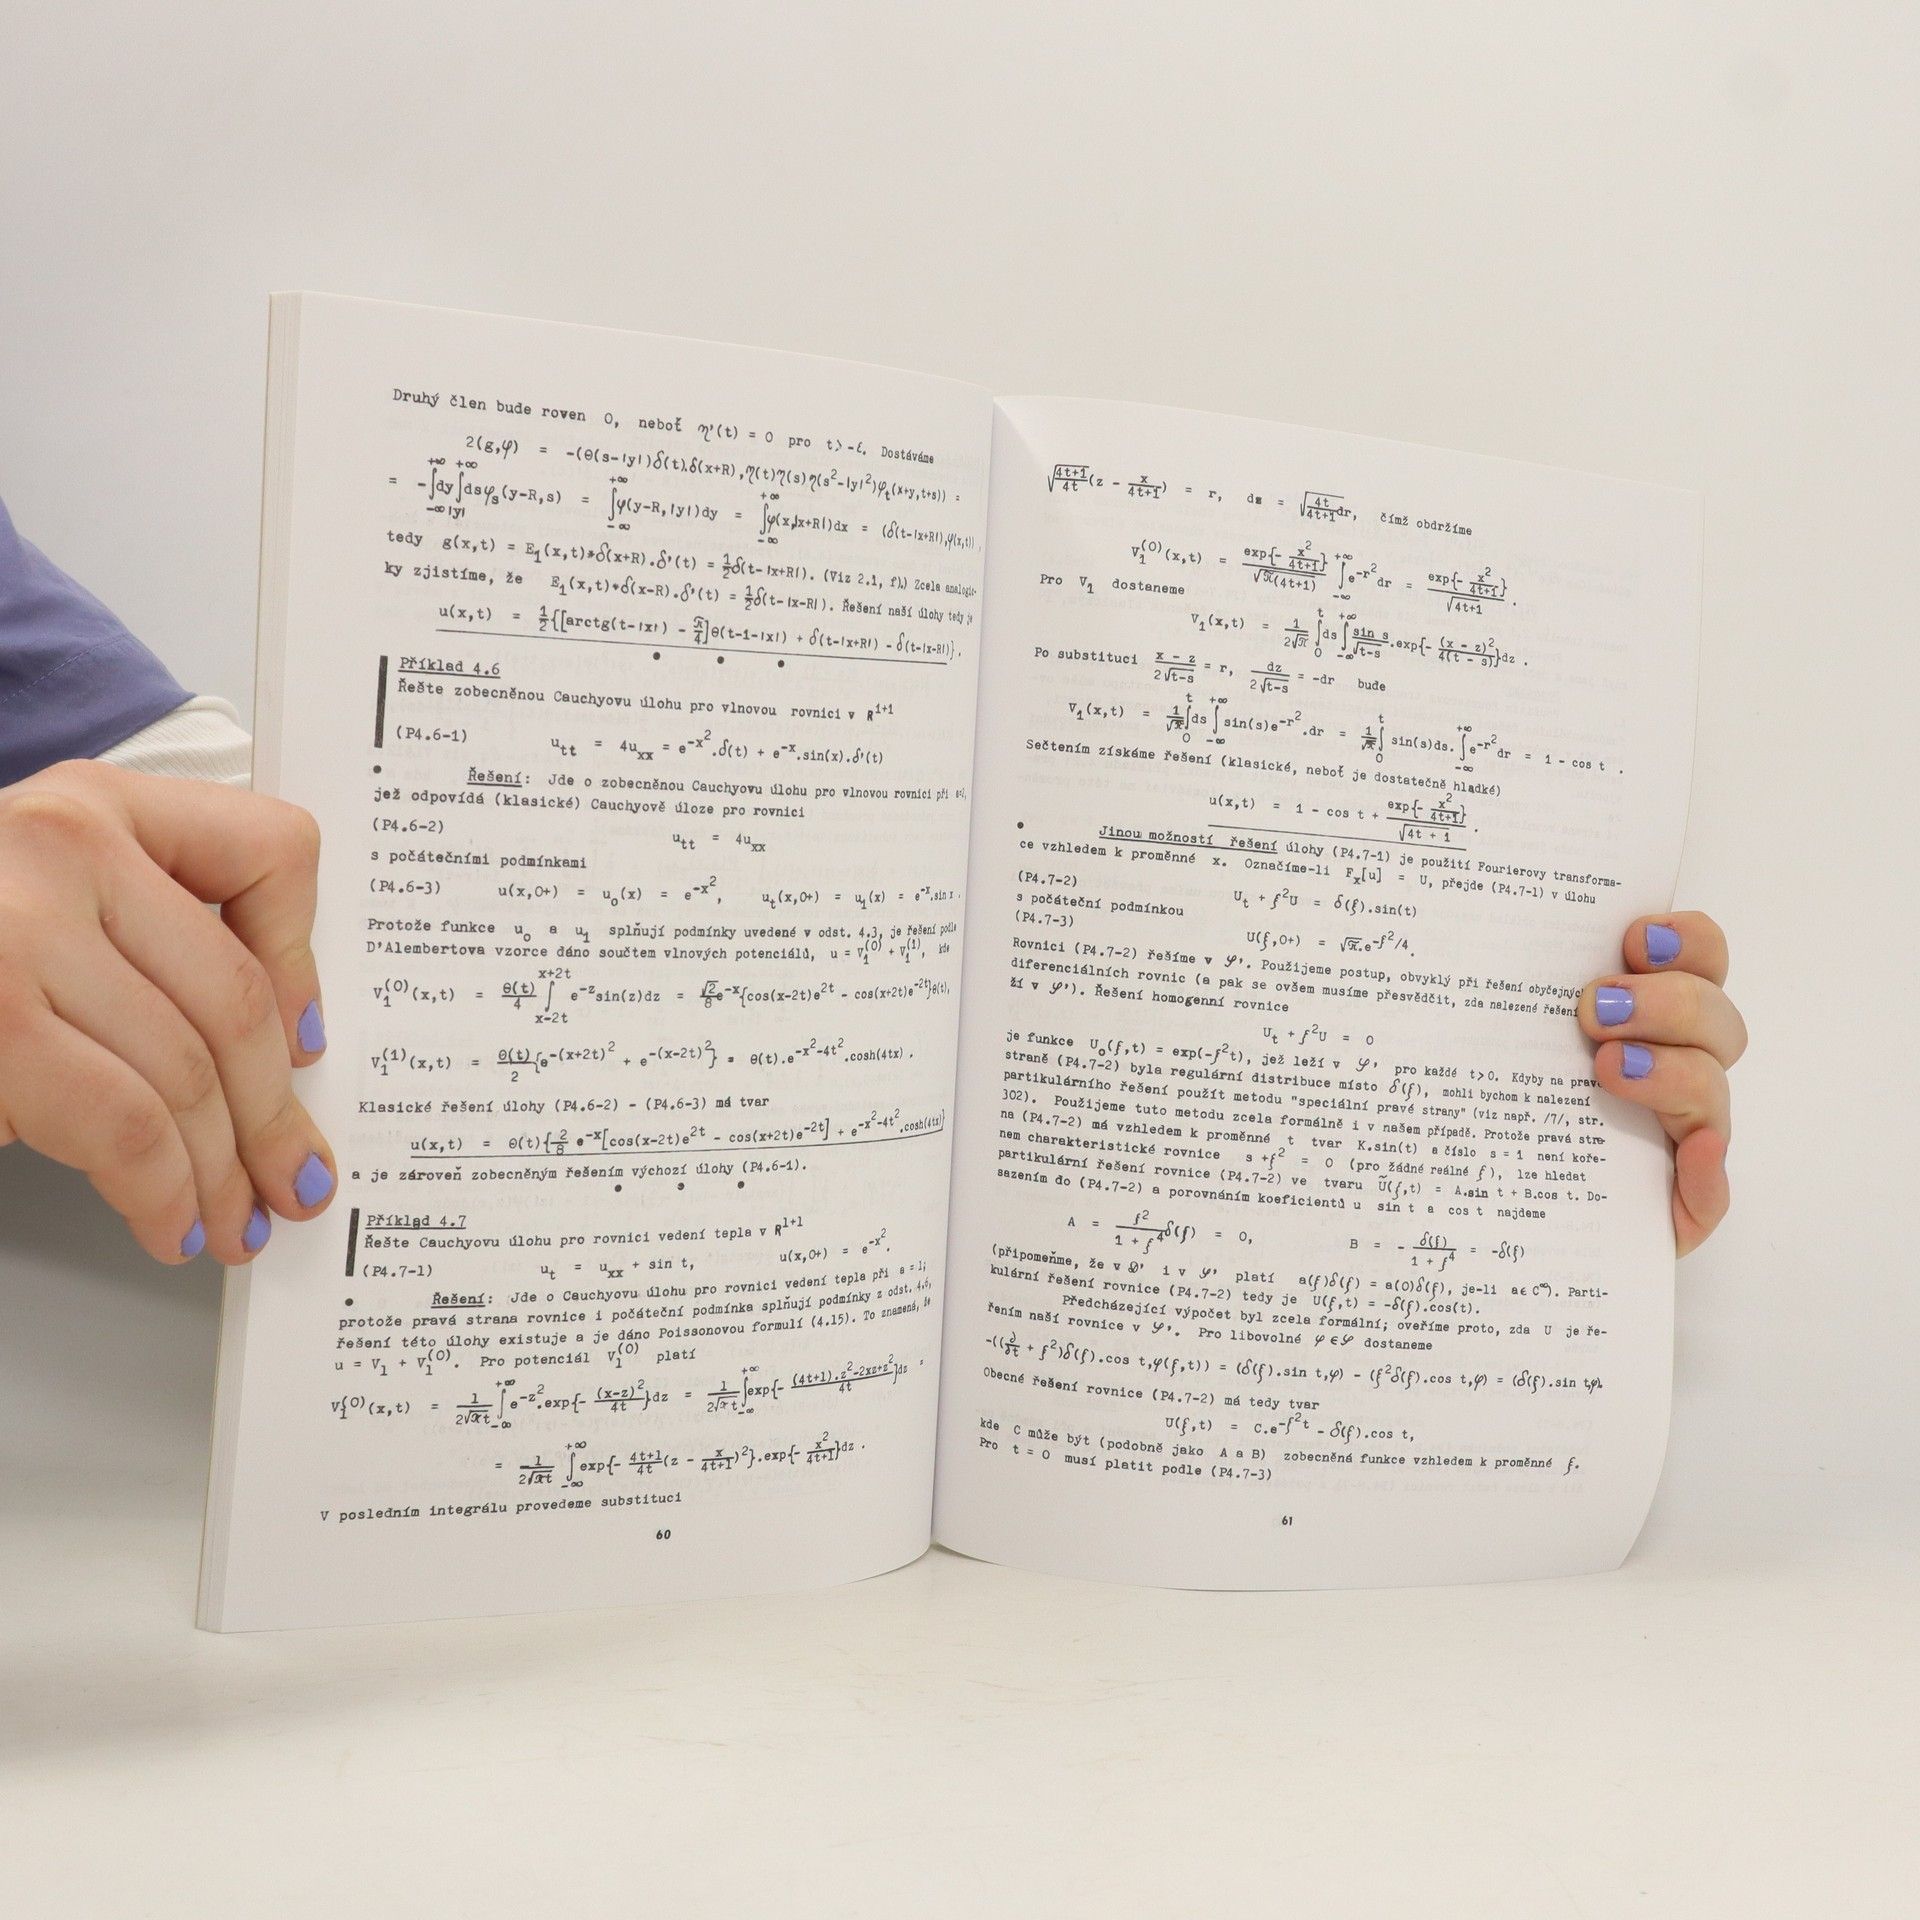 Druhý člen bude roven 0, neboť η'(t) = 0 pro t > -ε. Dostáváme
2(g,φ) = -(θ(s-|y|)δ(t).δ(x+R),η(t)η(s)η(s²-|y|²)φ_t(x+y,t+s)) =
= -∫_{-∞}^{+∞}dy∫_{|y|}^{+∞}dsφ_s(y-R,s) = ∫_{-∞}^{+∞}φ(y-R,|y|)dy = ∫_{-∞}^{+∞}φ(x,|x+R|)dx = (δ(t-|x+R|),φ(x,t)),
tedy g(x,t) = E₁(x,t)*δ(x+R).δ'(t) = ½δ(t-|x+R|). (Viz 2.1, f).) Zcela analogic-
ky zjistíme, že E₁(x,t)*δ(x-R).δ'(t) = ½δ(t-|x-R|). Řešení naší úlohy tedy je
u(x,t) = ½{[arctg(t-|x|) - π/4]θ(t-1-|x|) + δ(t-|x+R|) - δ(t-|x-R|)}.
Příklad 4.6
Řešte zobecněnou Cauchyovu úlohu pro vlnovou rovnici v R¹⁺¹
(P4.6-1) u_tt = 4u_xx = e^{-x²}.δ(t) + e^{-x}.sin(x).δ'(t)
Řešení: Jde o zobecněnou Cauchyovu úlohu pro vlnovou rovnici při a=2,
jež odpovídá (klasické) Cauchyově úloze pro rovnici
(P4.6-2) u_tt = 4u_xx
s počátečními podmínkami
(P4.6-3) u(x,0+) = u₀(x) = e^{-x²}, u_t(x,0+) = u₁(x) = e^{-x}.sin x .
Protože funkce u₀ a u₁ splňují podmínky uvedené v odst. 4.3, je řešení podle
D'Alembertova vzorce dáno součtem vlnových potenciálů, u = V₁⁽⁰⁾ + V₁⁽¹⁾, kde
V₁⁽⁰⁾(x,t) = θ(t)/4 ∫_{x-2t}^{x+2t} e^{-z}sin(z)dz = √2/8 e^{-x}{cos(x-2t)e^{2t} - cos(x+2t)e^{-2t}}θ(t),
V₁⁽¹⁾(x,t) = θ(t)/2 {e^{-(x+2t)²} + e^{-(x-2t)²}} = θ(t).e^{-x²-4t²}.cosh(4tx) .
Klasické řešení úlohy (P4.6-2) - (P4.6-3) má tvar
u(x,t) = θ(t){2/8 e^{-x}[cos(x-2t)e^{2t} - cos(x+2t)e^{-2t}] + e^{-x²-4t²}.cosh(4tx)}
a je zároveň zobecněným řešením výchozí úlohy (P4.6-1).
Příklad 4.7
Řešte Cauchyovu úlohu pro rovnici vedení tepla v R¹⁺¹
(P4.7-1) u_t = u_xx + sin t, u(x,0+) = e^{-x²}.
Řešení: Jde o Cauchyovu úlohu pro rovnici vedení tepla při a = 1;
protože pravá strana rovnice i počáteční podmínka splňují podmínky z odst. 4.6,
řešení této úlohy existuje a je dáno Poissonovou formulí (4.15). To znamená, že
u = V₁ + V₁⁽⁰⁾. Pro potenciál V₁⁽⁰⁾ platí
V₁⁽⁰⁾(x,t) = 1/(2√πt) ∫_{-∞}^{+∞} e^{-z²}.exp{- (x-z)²/4t}dz = 1/(2√πt) ∫_{-∞}^{+∞} exp{- ((4t+1).z²-2xz+z²)/4t}dz =
= 1/(2√πt) ∫_{-∞}^{+∞} exp{- (4t+1)/4t (z - x/(4t+1))²}.exp{- x²/(4t+1)}dz .
V posledním integrálu provedeme substituci
60
√((4t+1)/4t)(z - x/(4t+1)) = r, dz = √(4t/(4t+1))dr, čímž obdržíme
V₁⁽⁰⁾(x,t) = exp{- x²/(4t+1)}/√(π(4t+1)) ∫_{-∞}^{+∞} e^{-r²}dr = exp{- x²/(4t+1)}/√(4t+1) .
Pro V₁ dostaneme
V₁(x,t) = 1/(2√π) ∫_0^t ds ∫_{-∞}^{+∞} sin s/√(t-s) .exp{- (x - z)²/4(t - s)}dz .
Po substituci (x - z)/(2√(t-s)) = r, dz/(2√(t-s)) = -dr bude
V₁(x,t) = 1/√π ∫_0^t ds ∫_{-∞}^{+∞} sin(s)e^{-r²}.dr = 1/√π ∫_0^t sin(s)ds. ∫_{-∞}^{+∞} e^{-r²}dr = 1 - cos t .
Sečtením získáme řešení (klasické, neboť je dostatečně hladké)
u(x,t) = 1 - cos t + exp{- x²/(4t+1)}/√(4t + 1) .
Jinou možností řešení úlohy (P4.7-1) je použití Fourierovy transforma-
ce vzhledem k proměnné x. Označíme-li F_x[u] = U, přejde (P4.7-1) v úlohu
(P4.7-2) U_t + ξ²U = δ(ξ).sin(t)
s počáteční podmínkou
(P4.7-3) U(ξ,0+) = √π.e^{-ξ²/4}.
Rovnici (P4.7-2) řešíme v 𝒮'. Použijeme postup, obvyklý při řešení obyčejných
diferenciálních rovnic (a pak se ovšem musíme přesvědčit, zda nalezené řešení
ží v 𝒮'). Řešení homogenní rovnice
U_t + ξ²U = 0
je funkce U₀(ξ,t) = exp(-ξ²t), jež leží v 𝒮' pro každé t > 0. Kdyby na pravé
straně (P4.7-2) byla regulární distribuce místo δ(ξ), mohli bychom k nalezení
partikulárního řešení použít metodu "speciální pravé strany" (viz např. /7/, str.
302). Použijeme tuto metodu zcela formálně i v našem případě. Protože pravá stra-
na (P4.7-2) má vzhledem k proměnné t tvar K.sin(t) a číslo s = 1 není koře-
nem charakteristické rovnice s + ξ² = 0 (pro žádné reálné ξ), lze hledat
partikulární řešení rovnice (P4.7-2) ve tvaru Ũ(ξ,t) = A.sin t + B.cos t. Do-
sazením do (P4.7-2) a porovnáním koeficientů u sin t a cos t najdeme
A = ξ²/(1 + ξ⁴) δ(ξ) = 0, B = - δ(ξ)/(1 + ξ⁴) = -δ(ξ)
(připomeňme, že v 𝒟' i v 𝒮' platí a(ξ)δ(ξ) = a(0)δ(ξ), je-li a∈C^∞). Parti-
kulární řešení rovnice (P4.7-2) tedy je U(ξ,t) = -δ(ξ).cos(t).
Předcházející výpočet byl zcela formální; ověříme proto, zda U je ře-
řením naší rovnice v 𝒮'. Pro libovolné φ∈𝒮 dostaneme
-((∂/∂t + ξ²)δ(ξ).cos t,φ(ξ,t)) = (δ(ξ).sin t,φ) - (ξ²δ(ξ).cos t,φ) = (δ(ξ).sin t,φ).
Obecné řešení rovnice (P4.7-2) má tedy tvar
U(ξ,t) = C.e^{-ξ²t} - δ(ξ).cos t,
kde C může být (podobně jako A a B) zobecněná funkce vzhledem k proměnné ξ.
Pro t = 0 musí platit podle (P4.7-3)
61